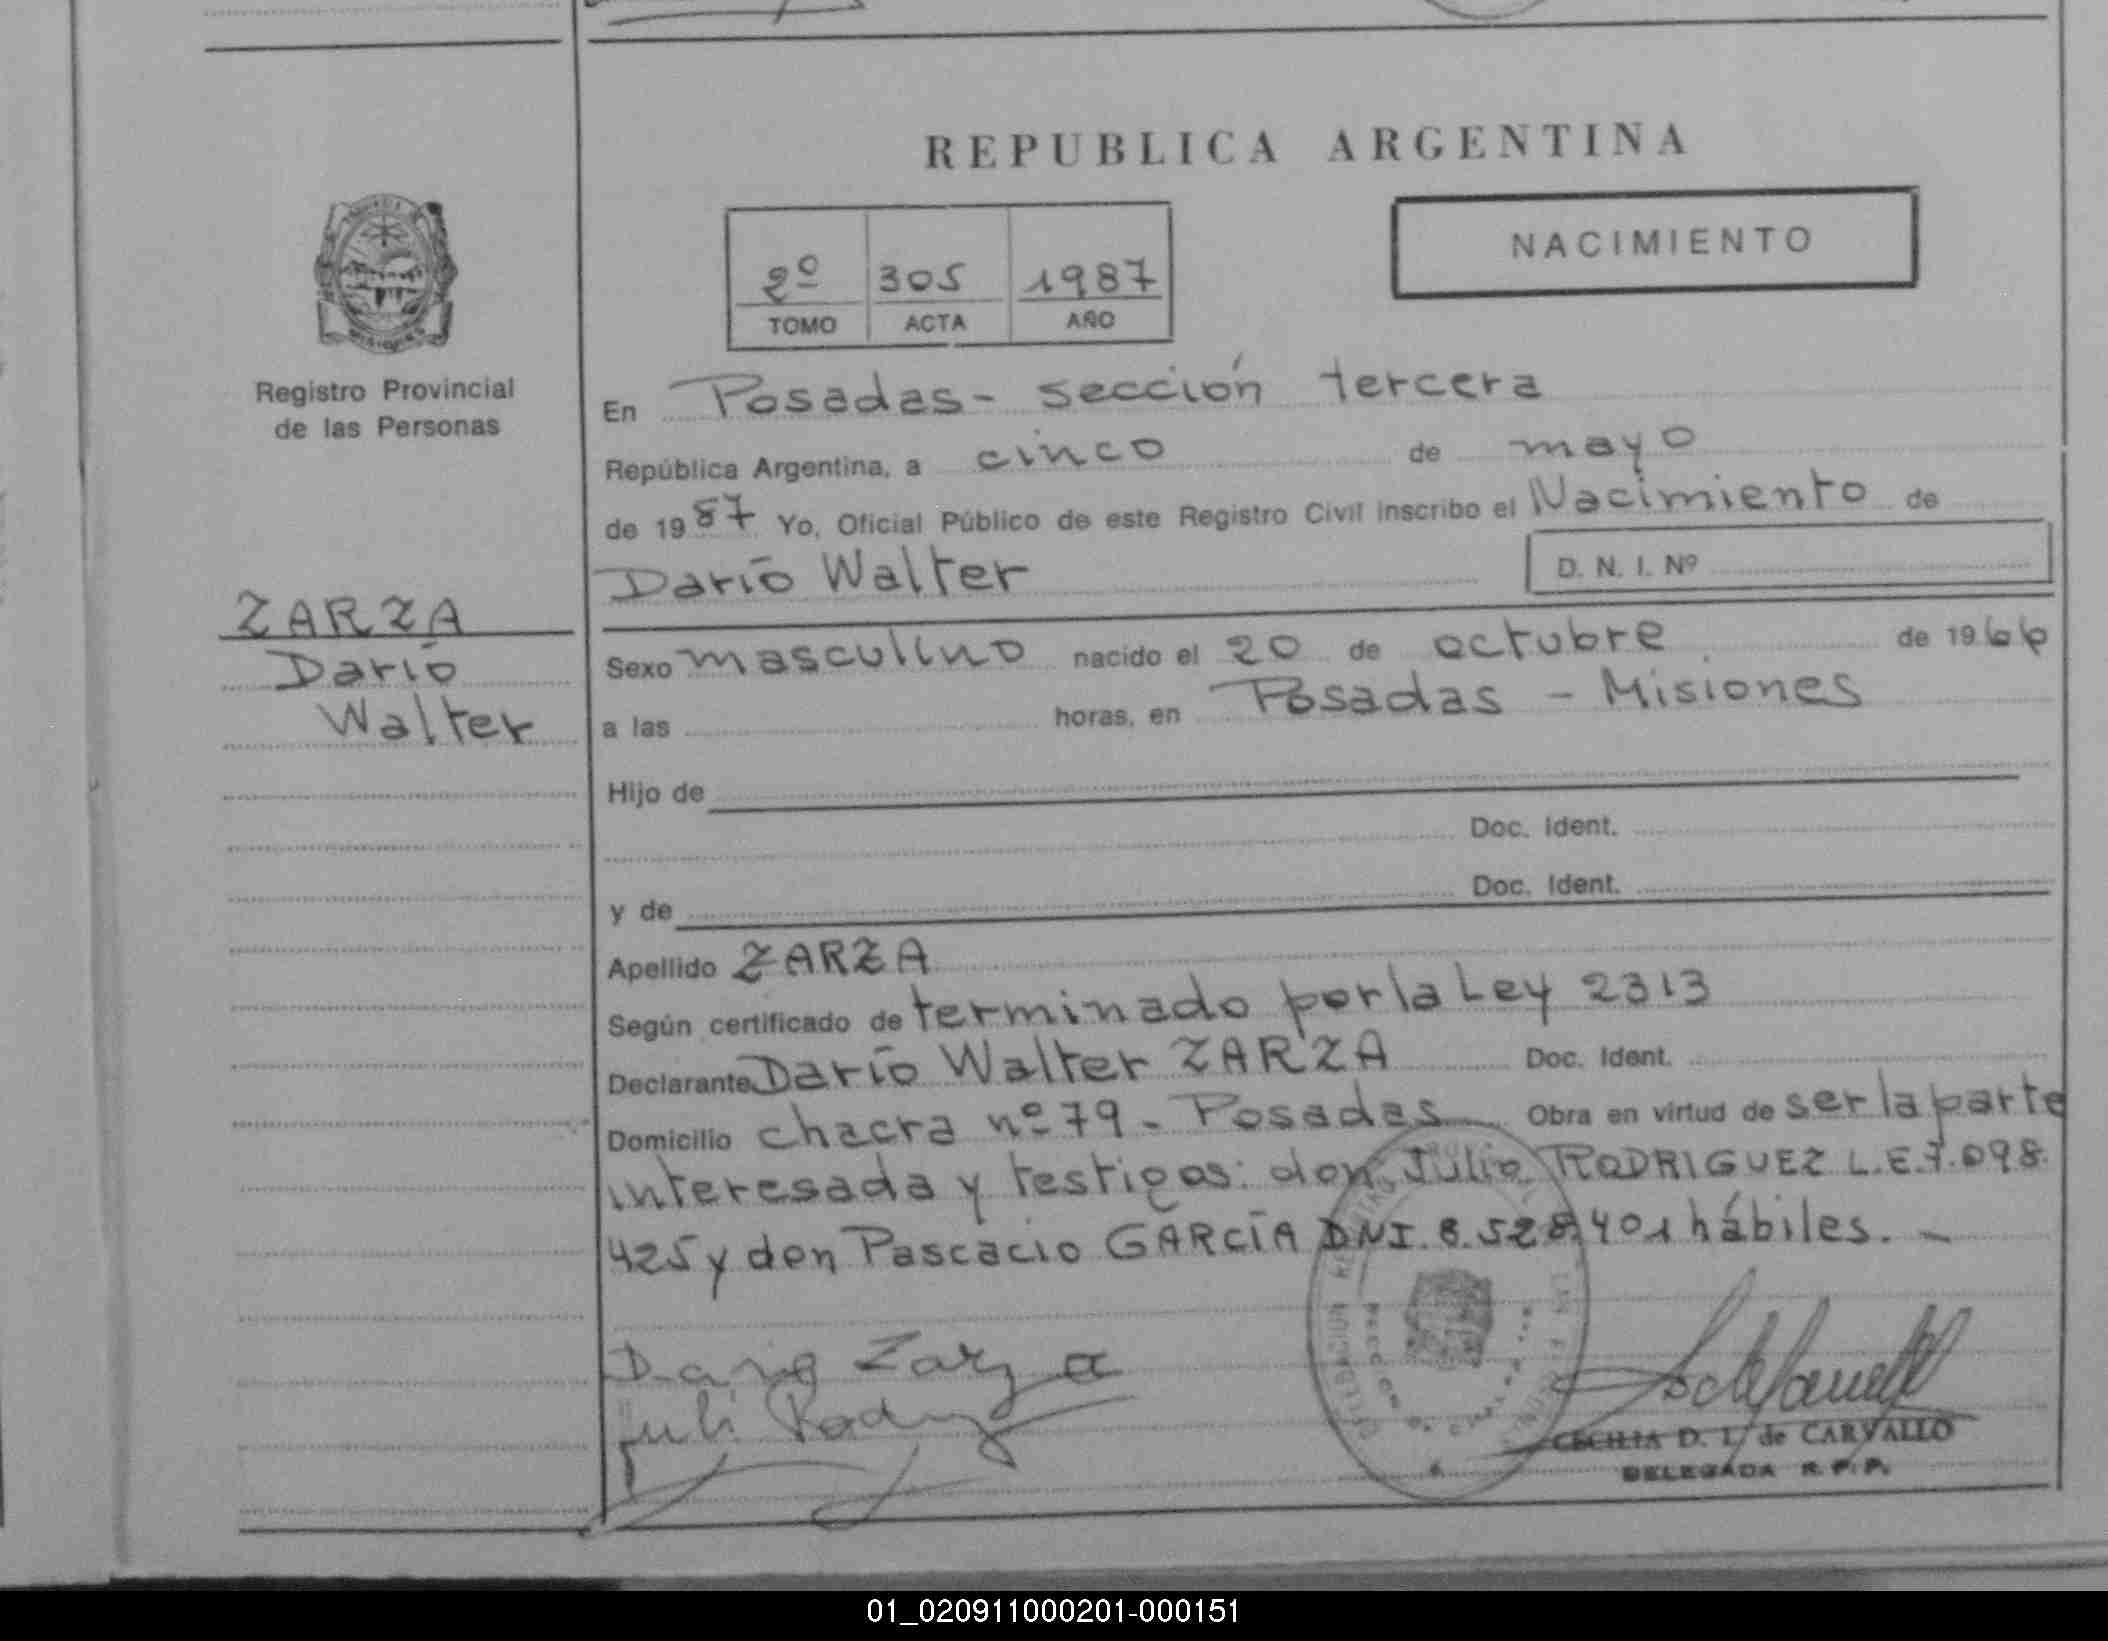 REPUBLICA ARGENTINA
NACIMIENTO
2º 305 1987
TOMO ACTA AÑO
Registro Provincial
de las Personas
ZARZA
Darío
Walter
En Posadas - sección tercera
República Argentina, a cinco de mayo
de 1987 Yo, Oficial Público de este Registro Civil inscribo el Nacimiento de
Darío Walter D. N. I. Nº
Sexo masculino nacido el 20 de octubre de 1966
a las horas, en Posadas - Misiones
Hijo de
Doc. Ident.
y de Doc. Ident.
Apellido ZARZA
Según certificado de terminado por la Ley 2313
Declarante Darío Walter ZARZA Doc. Ident.
Domicilio chacra nº 79 - Posadas Obra en virtud de ser la parte
interesada y testigos: don Julio RODRIGUEZ L.E. 7.098.
425 y don Pascacio GARCÍA DNI. 8.528.401 hábiles. -
Dario Zarza
CECILIA D. I. de CARVALLO
DELEGADA R. P. P.
01_020911000201-000151